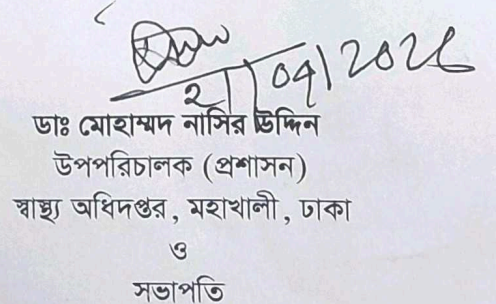 2/04/2026
ডাঃ মোহাম্মদ নাসির উদ্দিন
উপপরিচালক (প্রশাসন)
স্বাস্থ্য অধিদপ্তর, মহাখালী, ঢাকা
ও
সভাপতি